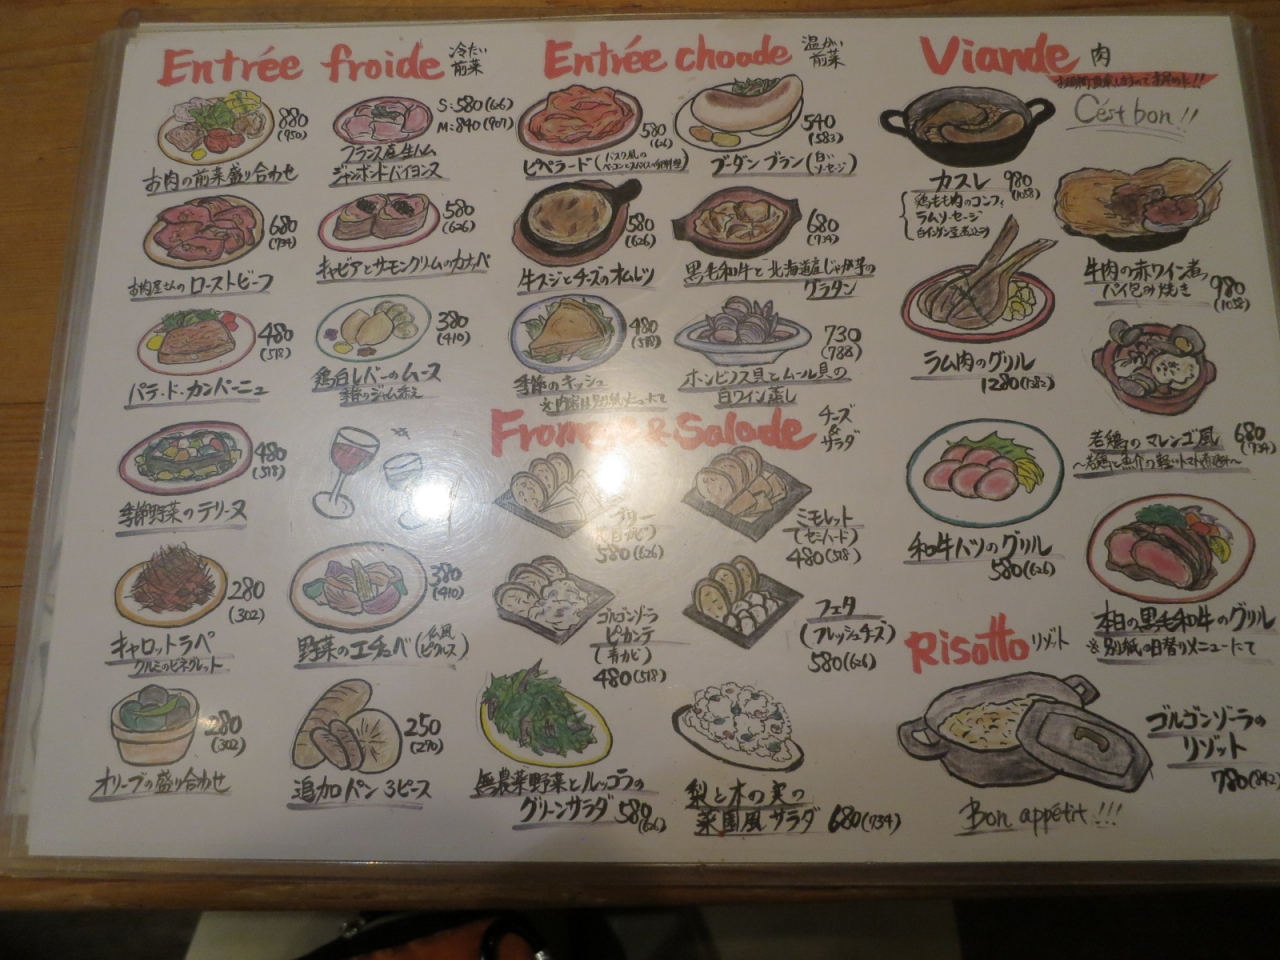 Entrée froide 冷たい
前菜
880
(950)
お肉の前菜盛り合わせ
S:580(626)
M:840(907)
フランス産生ハム
ジャンボンドバイヨンヌ
680
(734)
お肉屋さんのローストビーフ
580
(626)
キャビアとサーモンクリームのカナッペ
480
(518)
パテ・ド・カンパーニュ
380
(410)
鶏白レバーのムース
季節のジャム添え
480
(518)
季節野菜のテリーヌ
280
(302)
キャロットラペ
クルミのビネグレット
380
(410)
野菜のエチュベ(仏風
ピクルス)
280
(302)
オリーブの盛り合わせ
250
(270)
追加パン 3ピース
Entrée choade 温かい
前菜
580
(626)
ピペラード(バスク風の
540
(583)
ブーダン ブラン(白い
ソーセージ)
580
(626)
牛スジとチーズのオムレツ
680
(734)
黒毛和牛と北海道産じゃが芋の
グラタン
480
(518)
季節のキッシュ
※内容は別紙メニューにて
730
(788)
ホンビノス貝とムール貝の
白ワイン蒸し
& Salade チーズ
&
サラダ
ブリー
(白カビ)
580(626)
ミモレット
(セミハード)
480(518)
ゴルゴンゾーラ
ピカンテ
(青カビ)
480(518)
フェタ
(フレッシュチーズ)
580(626)
無農薬野菜とルッコラの
グリーンサラダ 580
(626)
梨と木の実の
菜園風サラダ 680(734)
Viande 肉
C'est bon!!
カスレ 980
(1058)
鶏もも肉のコンフィ
ラムソーセージ
白インゲン豆煮込み
牛肉の赤ワイン煮
パイ包み焼き 980
(1058)
ラム肉のグリル
1280(1382)
若鶏のマレンゴ風 680
(734)
~若鶏と魚介の軽いトマト煮込み~
和牛ハツのグリル
580(626)
本日の黒毛和牛のグリル
※別紙の日替りメニューにて
Risotto リゾット
ゴルゴンゾーラの
リゾット
780(842)
Bon appétit!!!